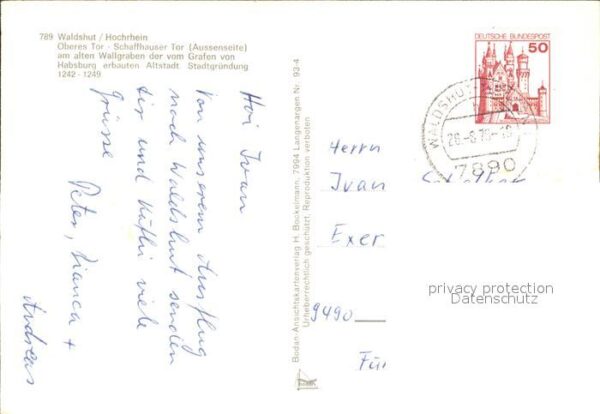 789 Waldshut / Hochrhein
Oberes Tor - Schaffhauser Tor (Aussenseite)
am alten Wallgraben der vom Grafen von
Habsburg erbauten Altstadt Stadtgründung
1242 - 1249
Hoi Ivan
Von unserem Ausflug
nach Waldshut senden
dir und viele
Grüsse
Peter, Bianca +
Andreas
Bodan-Ansichtskartenverlag H. Bockelmann, 7994 Langenargen Nr. 93-4
Urheberrechtlich geschützt. Reproduktion verboten
DEUTSCHE BUNDESPOST
50
WALDSHUT
7890
Herrn
Ivan
Exer
9490
Für
privacy protection
Datenschutz